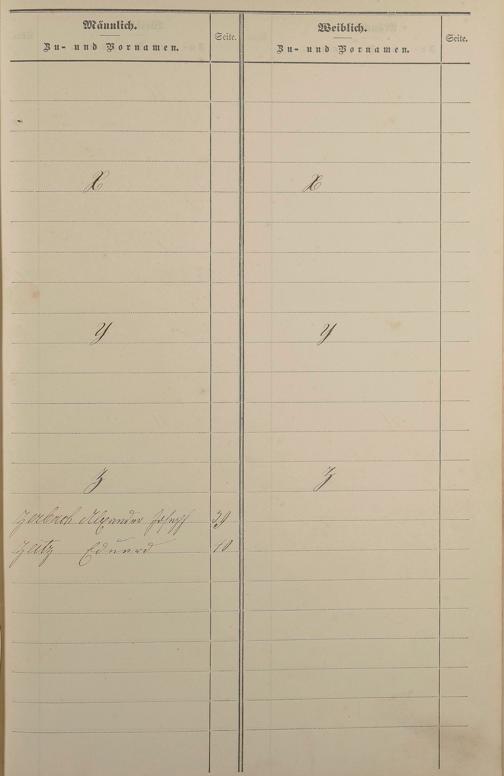 Männlich.
Zu- und Vornamen.
Seite.
Weiblich.
Zu- und Vornamen.
Seite.
X
X
Y
Y
Z
Z
Alexander Joseph 39
Zeitz Eduard 10